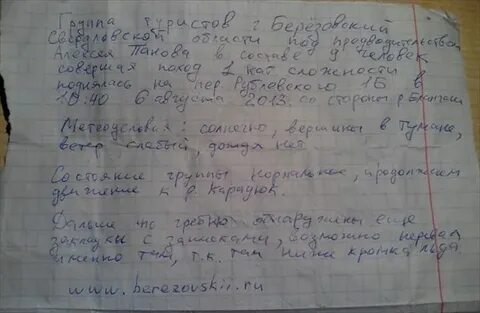 Группа туристов г. Берёзовский
Свердловской области под предводительством
Алексея Панова в составе 9 человек
совершая поход 1 кат сложности
поднялась на пер. Рублевского 1Б в
10:40 6 августа 2013. со стороны р.
Метеоусловия: солнечно, вершины в тумане,
ветер слабый, дождя нет.
Состояние группы нормальное, продолжаем
движение к р. Караюк.
Дальше по гребню обнаружены ещё
закладки с записками, возможно перевал
именно там, т.к. там ниже кромка льда
www.berezovskii.ru